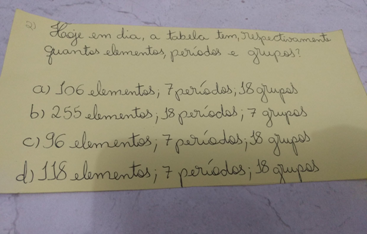 2) Hoje em dia, a tabela tem, respectivamente
quantos elementos, períodos e grupos?
a) 106 elementos; 7 períodos, 18 grupos
b) 255 elementos, 18 períodos; 7 grupos
c) 96 elementos; 7 períodos; 18 grupos
d) 118 elementos; 7 períodos; 18 grupos